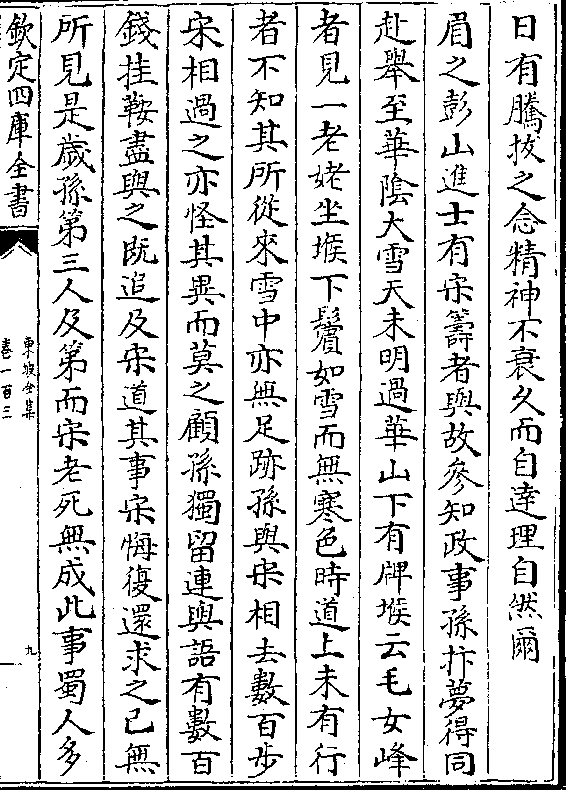 日有騰拔之念精神不衰久而自達理自然爾
眉之彭山進士有宋籌者與故參知政事孫抃夢得同
赴舉至華陰大雪天未明過華山下有牌堠云毛女峰
者見一老姥坐堠下鬢如雪而無寒色時道上未有行
者不知其所從來雪中亦無足跡孫與宋相去數百步
宋相過之亦怪其異而莫之顧孫獨留連與語有數百
錢挂鞍盡與之既追及宋道其事宋悔復還求之已無
所見是歲孫第三人及第而宋老死無成此事蜀人多
欽定四庫全書
東坡全集
卷一百三
九